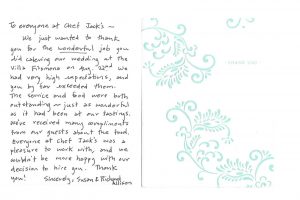 To everyone at Chef Jack's ~
We just wanted to thank
you for the wonderful job you
did catering our wedding at the
Villa Filomena on Aug. 22nd. We
had very high expectations, and
you by far exceeded them.
The service and food were both
outstanding — just as wonderful
as it had been at our tastings.
We've received many compliments
from our guests about the food.
Everyone at Chef Jack's was a
pleasure to work with, and we
couldn't be more happy with our
decision to hire you. Thank
you! Sincerely, Susan & Richard
Allison
THANK YOU